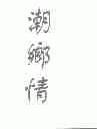 潮鄉情